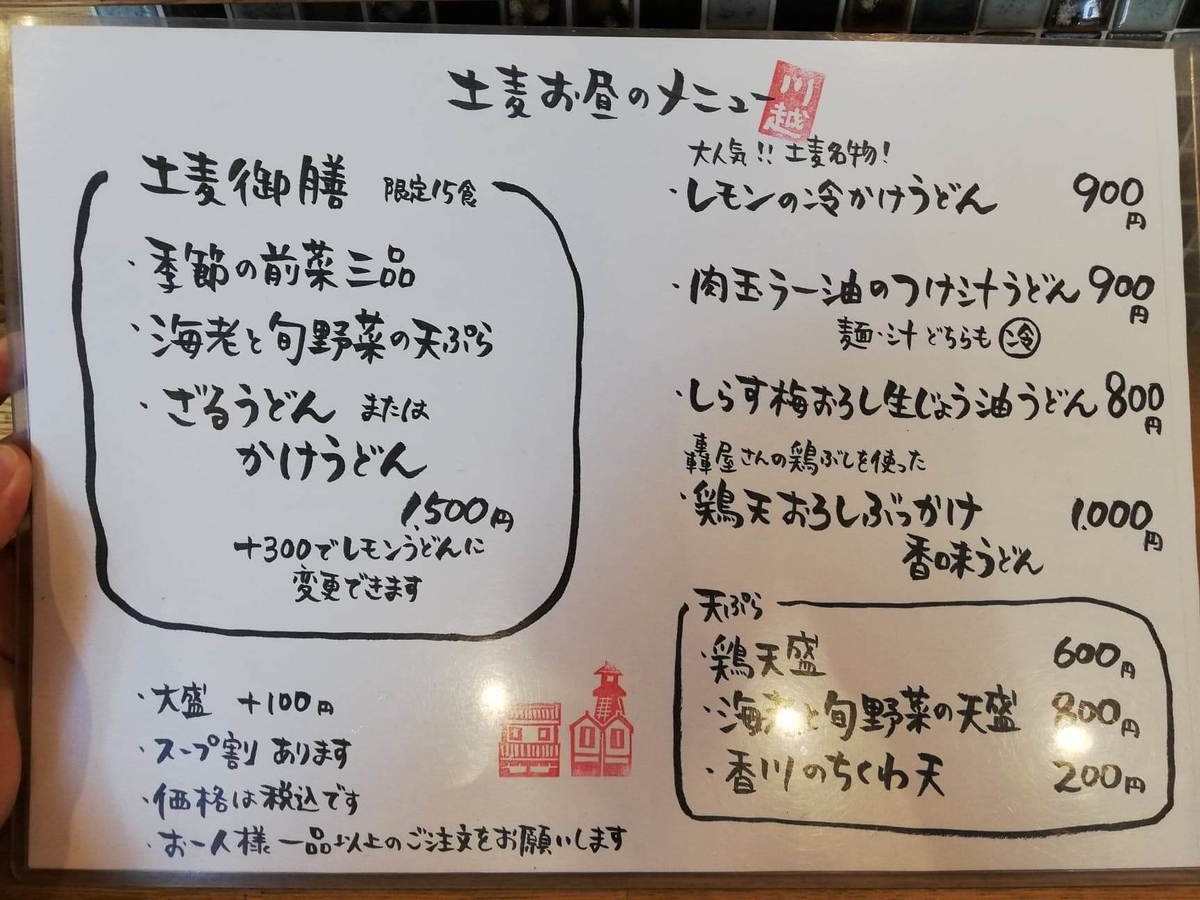 土麦お昼のメニュー
川越
土麦御膳 限定15食
・季節の前菜三品
・海老と旬野菜の天ぷら
・ざるうどん または
かけうどん
1,500円
+300でレモンうどんに
変更できます
・大盛 +100円
・スープ割り あります
・価格は税込です
・お一人様一品以上のご注文をお願いします
大人気!! 土麦名物!
・レモンの冷かけうどん 900円
・肉玉ラー油のつけ汁うどん 900円
麺・汁 どちらも 冷
・しらす梅おろし生じょう油うどん 800円
轟屋さんの鶏ぶしを使った
・鶏天おろしぶっかけ 1,000円
香味うどん
天ぷら
・鶏天盛 600円
・海老と旬野菜の天盛 800円
・香川のちくわ天 200円